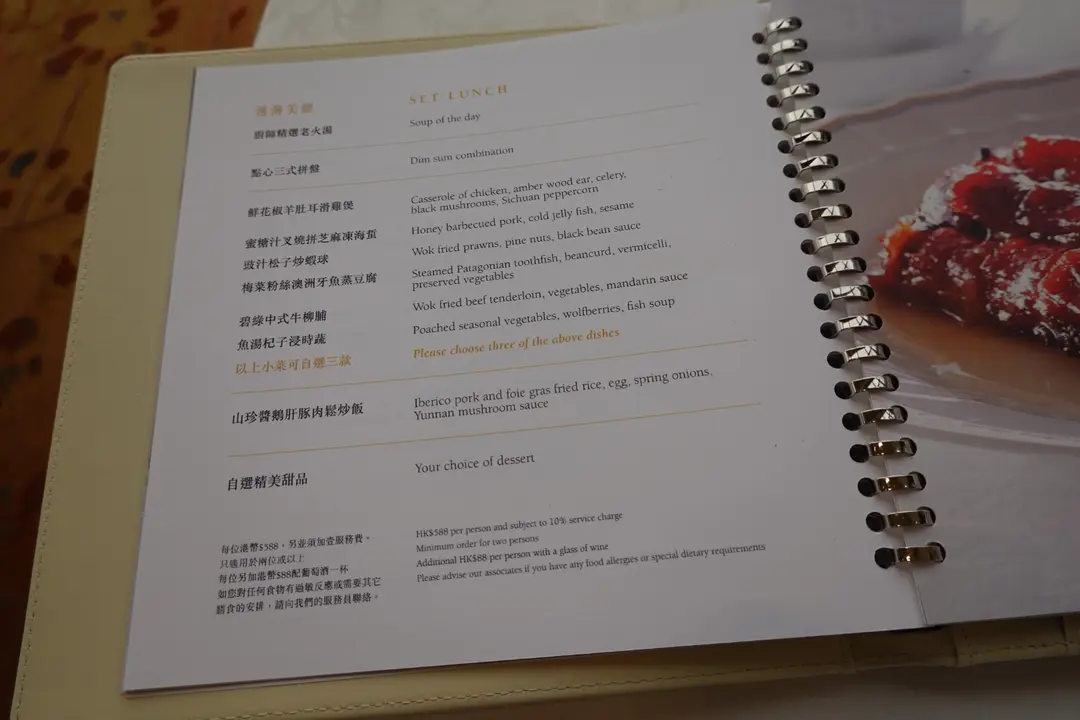 SET LUNCH
廚師精選老火湯
Soup of the day
點心三式拼盤
Dim sum combination
鮮花椒羊肚耳滑雞煲
Casserole of chicken, amber wood ear, celery,
black mushrooms, Sichuan peppercorn
蜜糖汁叉燒拼芝麻凍海蜇
Honey barbecued pork, cold jelly fish, sesame
豉汁松子炒蝦球
Wok fried prawns, pine nuts, black bean sauce
梅菜粉絲澳洲牙魚蒸豆腐
Steamed Patagonian toothfish, beancurd, vermicelli,
preserved vegetables
碧綠中式牛柳脯
Wok fried beef tenderloin, vegetables, mandarin sauce
魚湯杞子浸時蔬
Poached seasonal vegetables, wolfberries, fish soup
以上小菜可自選三款
Please choose three of the above dishes
山珍醬鵝肝豚肉鬆炒飯
Iberico pork and foie gras fried rice, egg, spring onions.
Yunnan mushroom sauce
自選精美甜品
Your choice of dessert
每位港幣$588，另並須加壹服務費。
HK$588 per person and subject to 10% service charge
只適用於兩位或以上
Minimum order for two persons
每位另加港幣$88配葡萄酒一杯
Additional HK$88 per person with a glass of wine
如您對任何食物有過敏反應或需要其它
膳食的安排，請向我們的服務員聯絡。
Please advise our associates if you have any food allergies or special dietary requirements